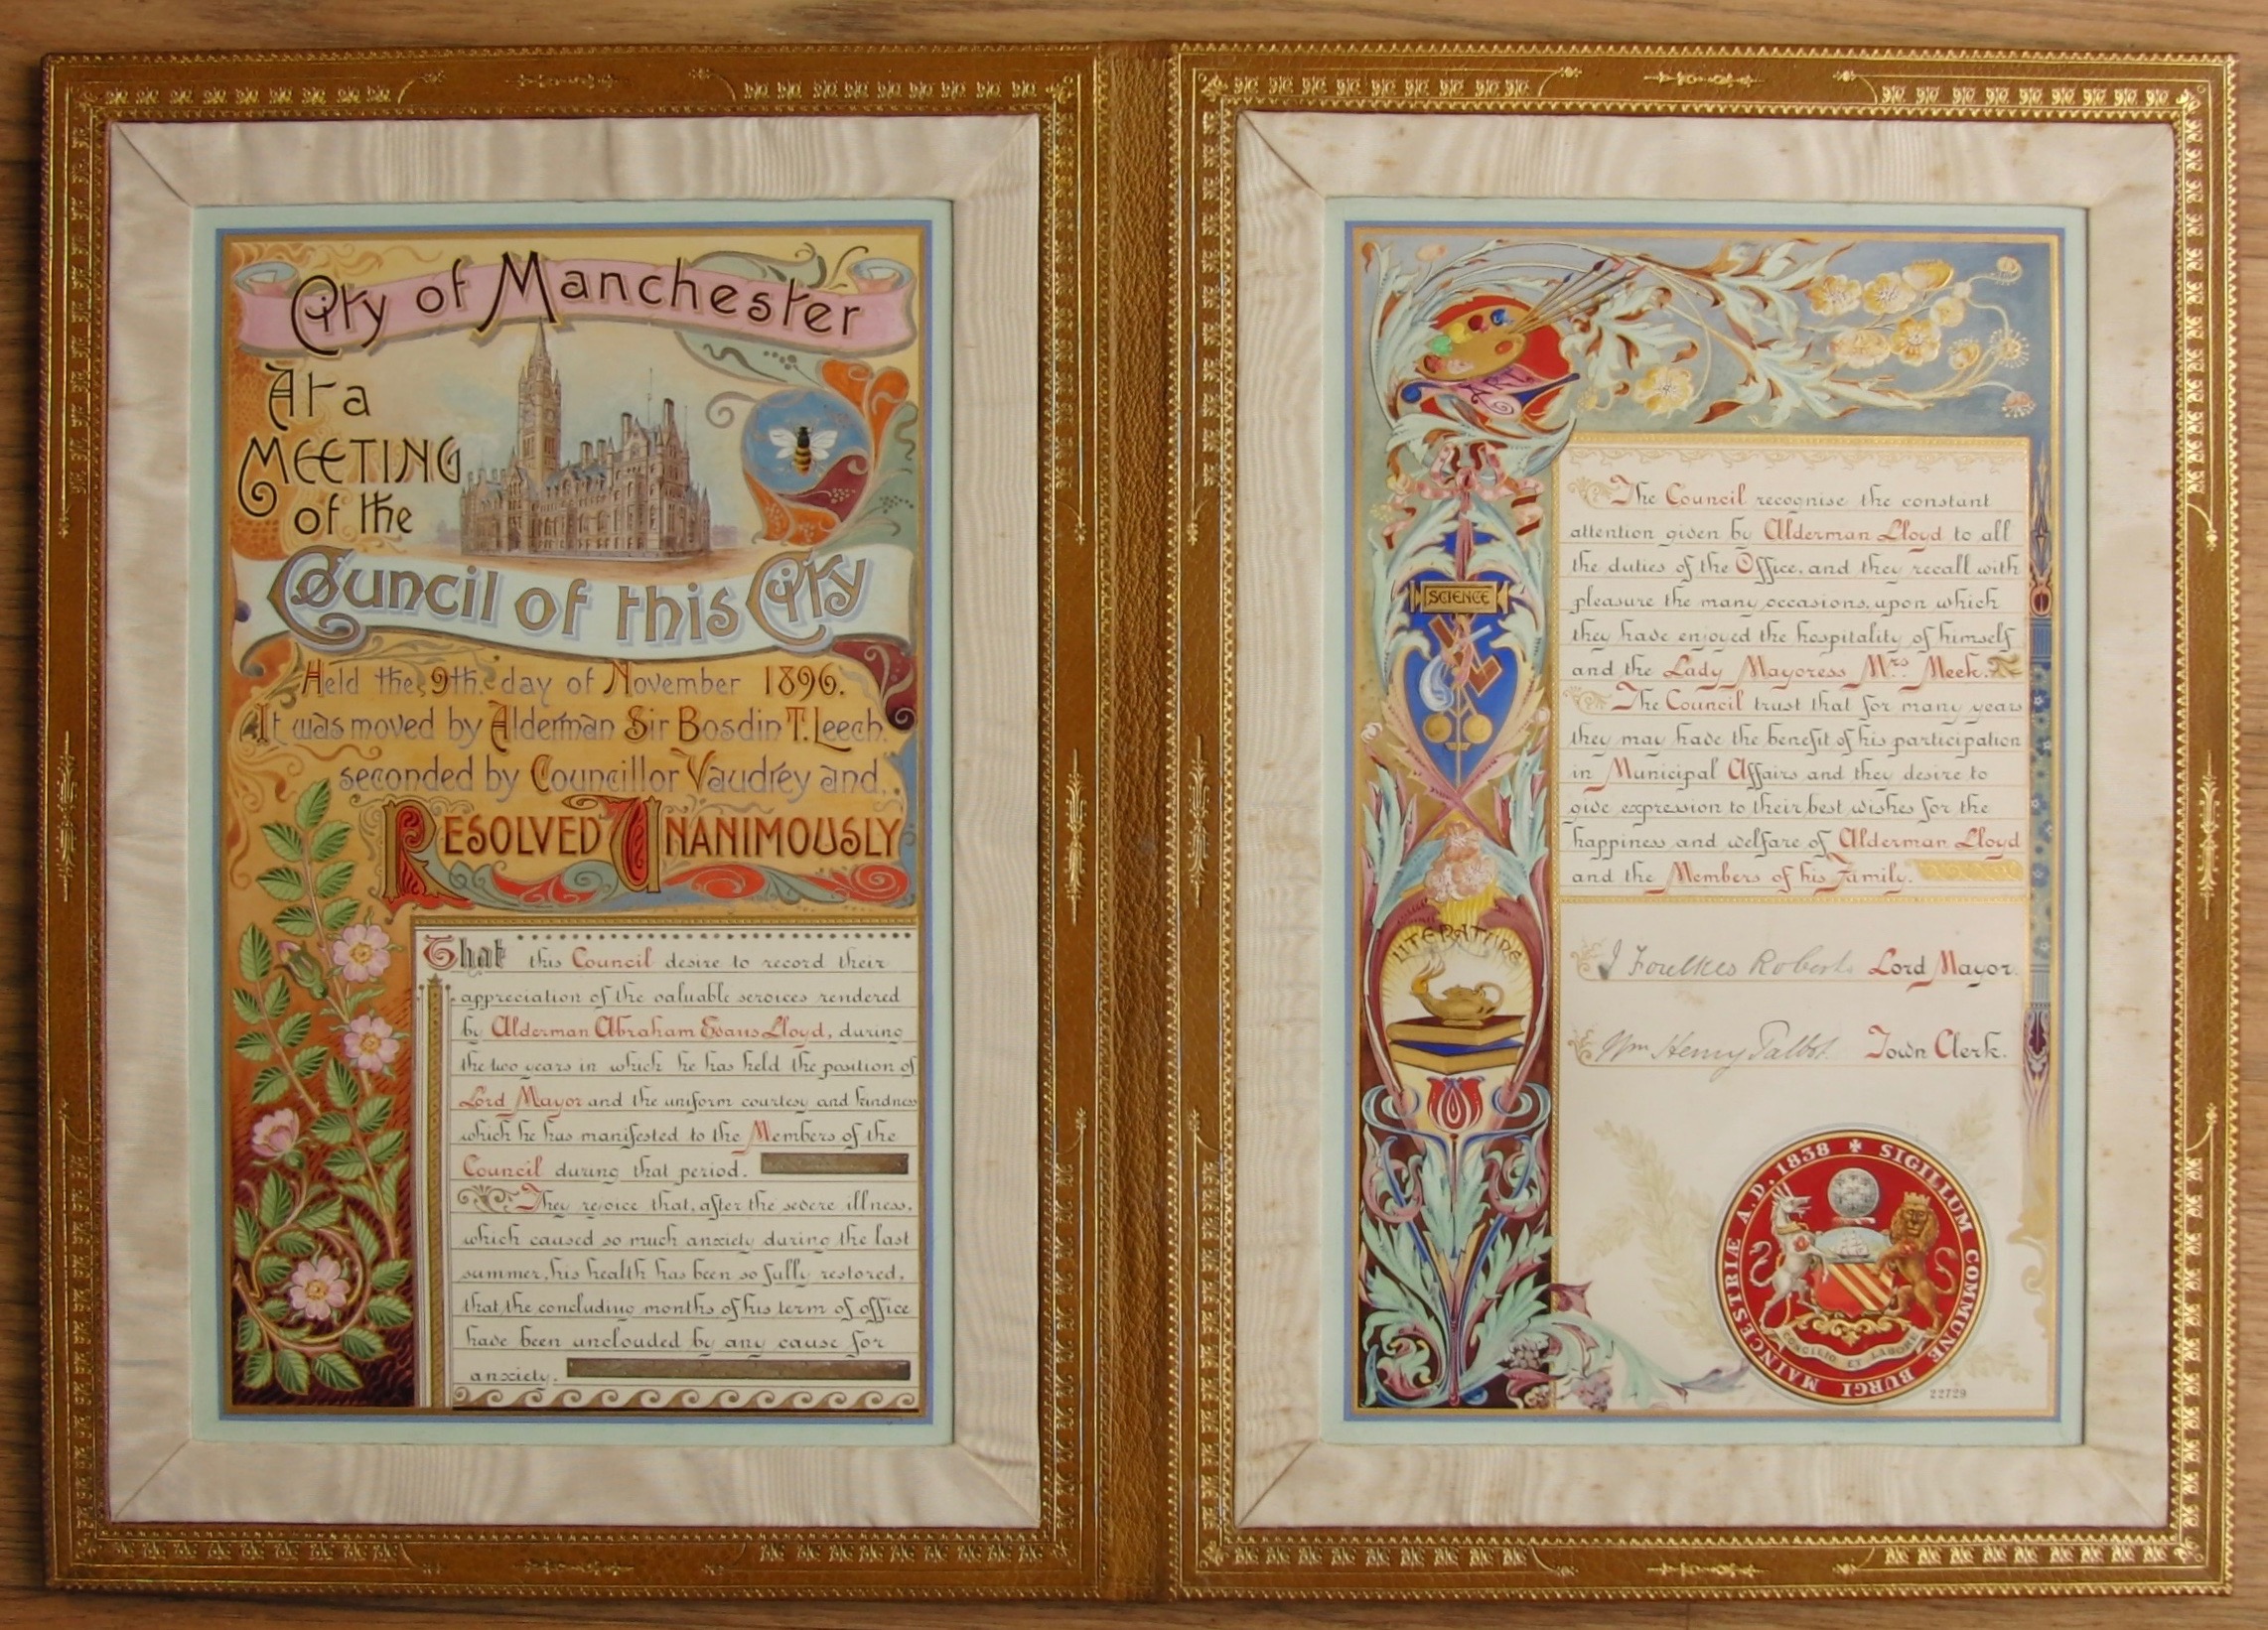 City of Manchester
At a
MEETING
of the
Council of this City
Held the 9th. day of November 1896.
It was moved by Alderman Sir Bosdin T. Leech.
seconded by Councillor Vaudrey and.
RESOLVED UNANIMOUSLY
That this Council desire to record their
appreciation of the valuable services rendered
by Alderman Abraham Evans Lloyd, during
the two years in which he has held the position of
Lord Mayor and the uniform courtesy and kindness
which he has manifested to the Members of the
Council during that period.
They rejoice that, after the severe illness,
which caused so much anxiety during the last
summer, his health has been so fully restored,
that the concluding months of his term of office
have been unclouded by any cause for
anxiety.
ART
SCIENCE
LITERATURE
The Council recognise the constant
attention given by Alderman Lloyd to all
the duties of the Office, and they recall with
pleasure the many occasions, upon which
they have enjoyed the hospitality of himself
and the Lady Mayoress Mrs. Meek.
The Council trust that for many years
they may have the benefit of his participation
in Municipal Affairs and they desire to
give expression to their best wishes for the
happiness and welfare of Alderman Lloyd
and the Members of his Family.
J Foulkes Roberts Lord Mayor.
Wm Henry Talbot Town Clerk.
SIGILLUM COMMUNE BURGI MAINCESTRIÆ A.D. 1838
CONCILIO ET LABORE
22729